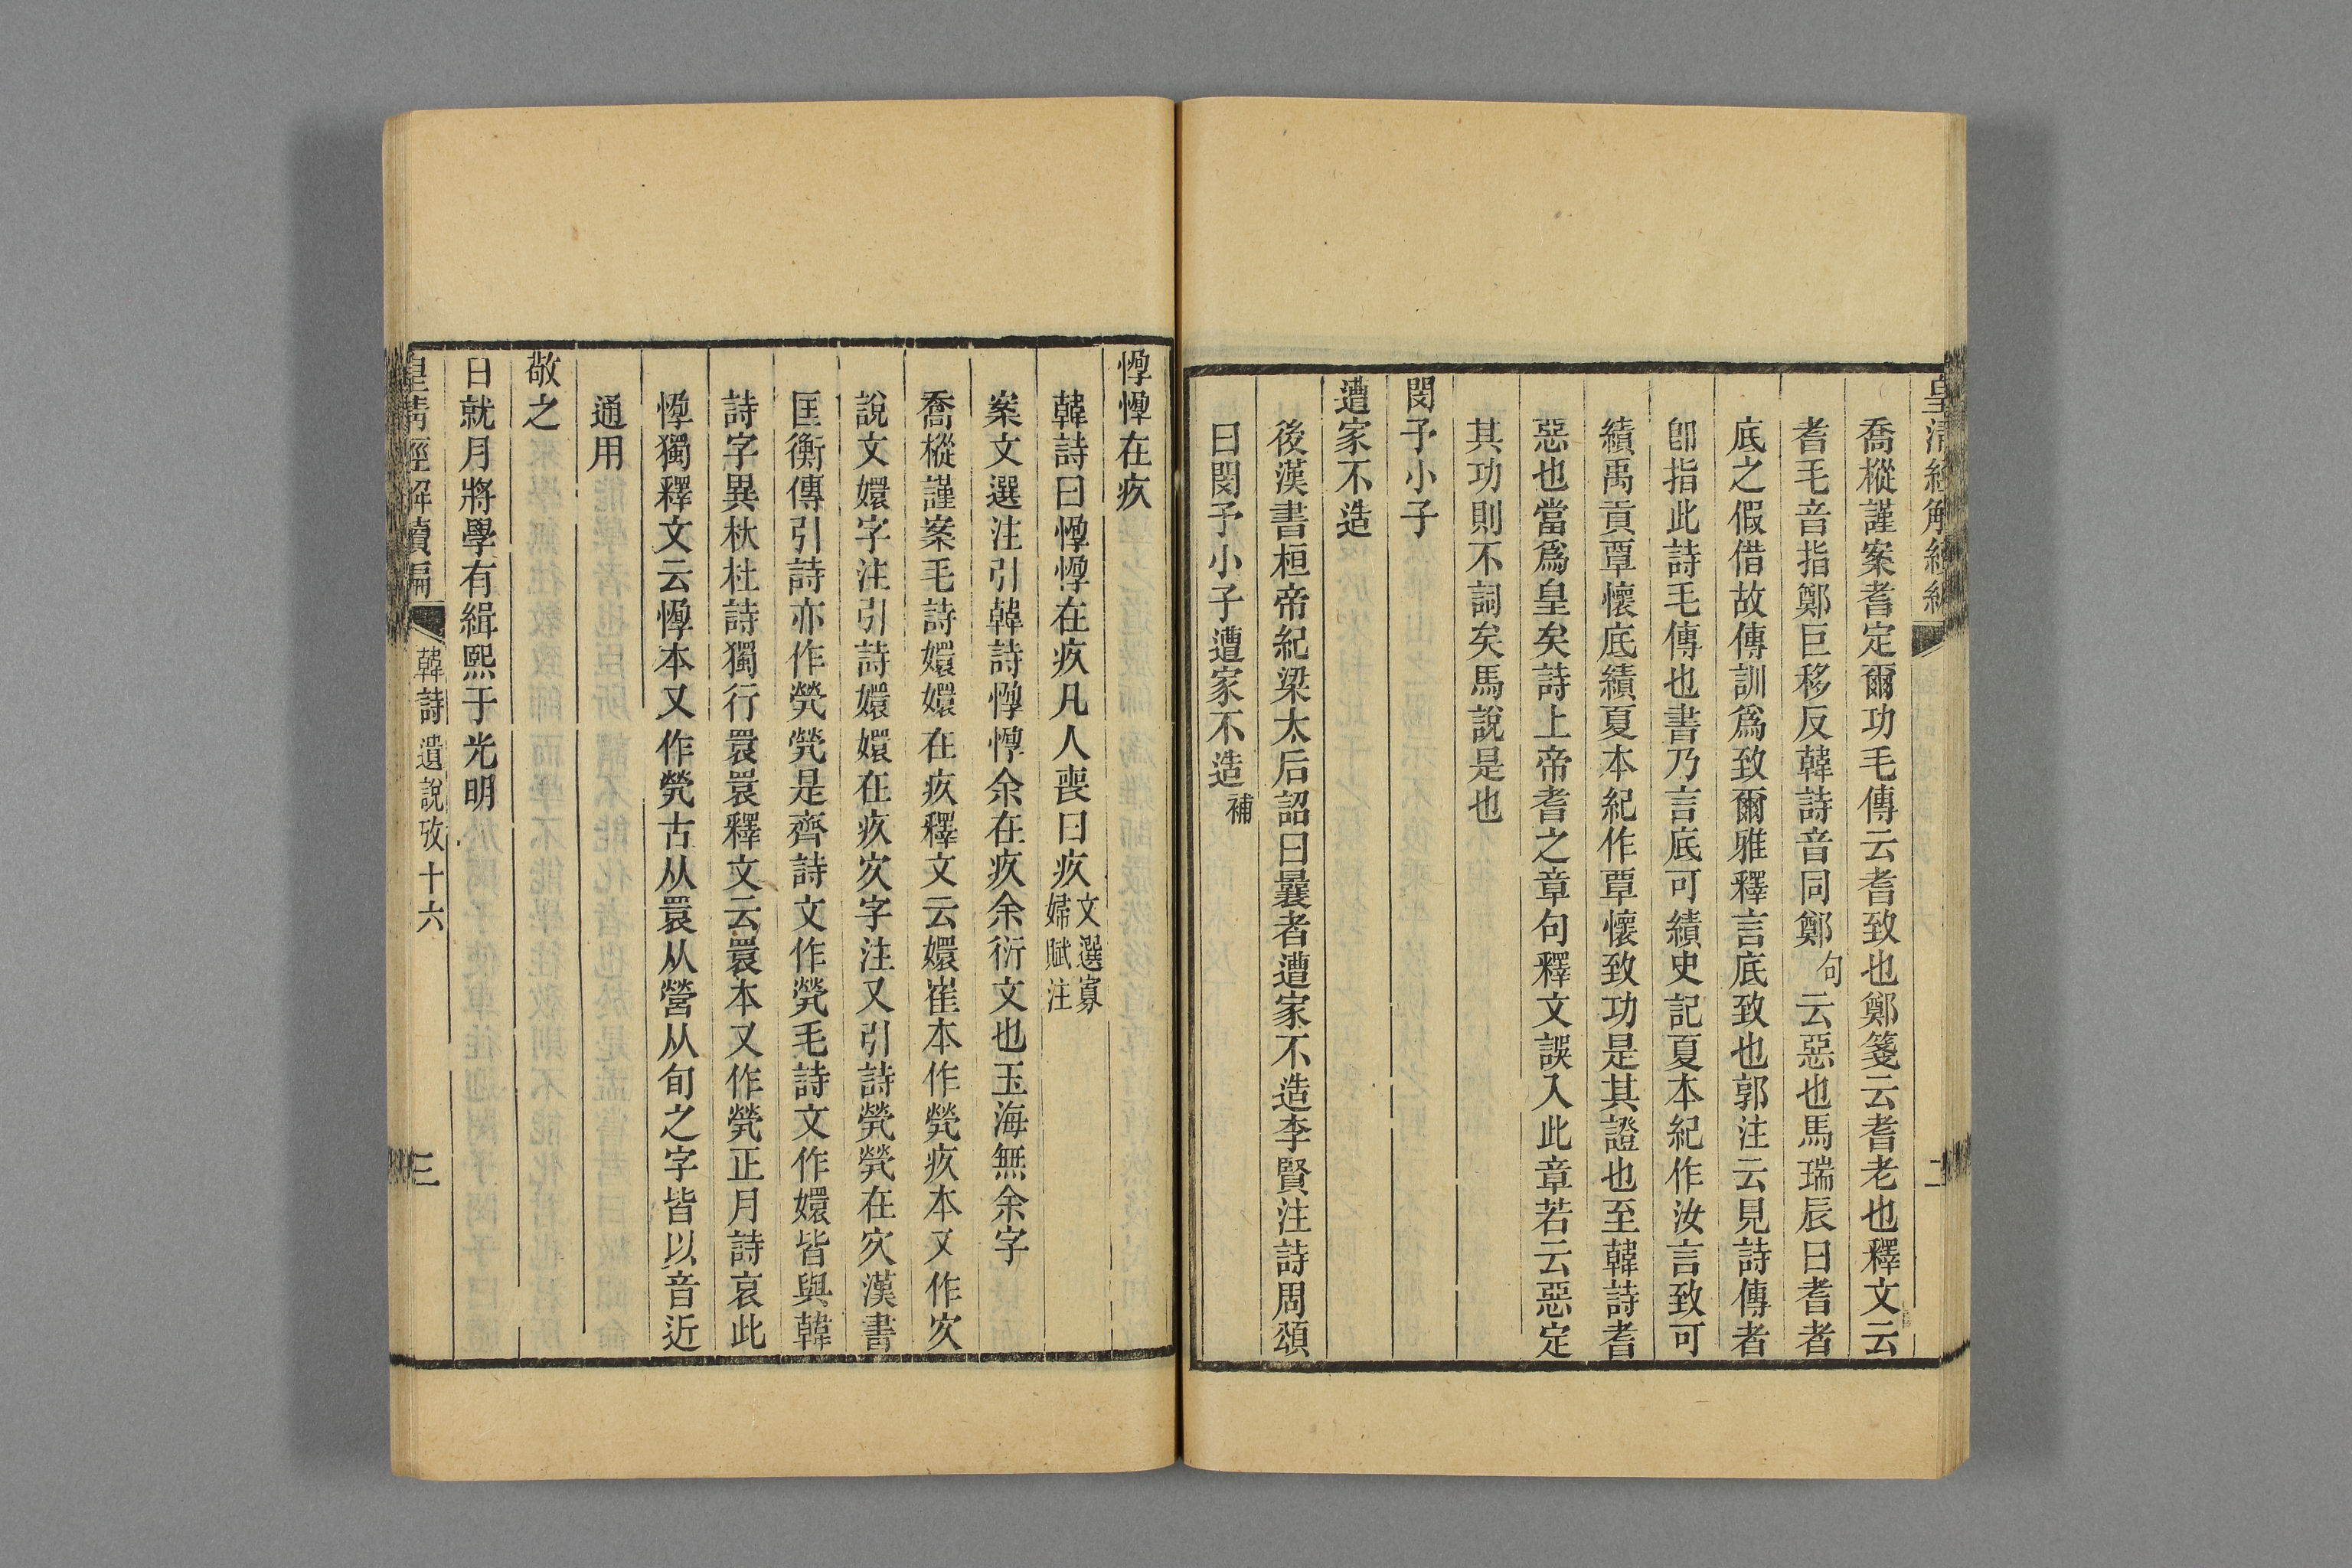 皇清經解續編
喬樅謹案耆定爾功毛傳云耆致也鄭箋云耆老也釋文云
耆毛音指鄭巨移反韓詩音同鄭句云惡也馬瑞辰曰耆者
底之假借故傳訓爲致爾雅釋言底致也郭注云見詩傳者
卽指此詩毛傳也書乃言底可績史記夏本紀作汝言致可
績禹貢覃懷底績夏本紀作覃懷致功是其證也至韓詩耆
惡也當爲皇矣詩上帝耆之章句釋文誤入此章若云惡定
其功則不詞矣馬說是也
閔予小子
遭家不造
後漢書桓帝紀梁太后詔曰曩者遭家不造李賢注詩周頌
曰閔予小子遭家不造補
二
惸惸在疚
韓詩曰惸惸在疚凡人喪曰疚文選寡婦賦注
案文選注引韓詩惸惸余在疚余衍文也玉海無余字
喬樅謹案毛詩嬛嬛在疚釋文云嬛崔本作煢疚本又作㝌
說文嬛字注引詩嬛嬛在疚㝌字注又引詩煢煢在㝌漢書
匡衡傳引詩亦作煢煢是齊詩文作煢毛詩文作嬛皆與韓
詩字異杕杜詩獨行睘睘釋文云睘本又作煢正月詩哀此
惸獨釋文云惸本又作煢古从睘从營从旬之字皆以音近
通用
敬之
日就月將學有緝熙于光明
皇清經解續編
韓詩遺說攷十六
三